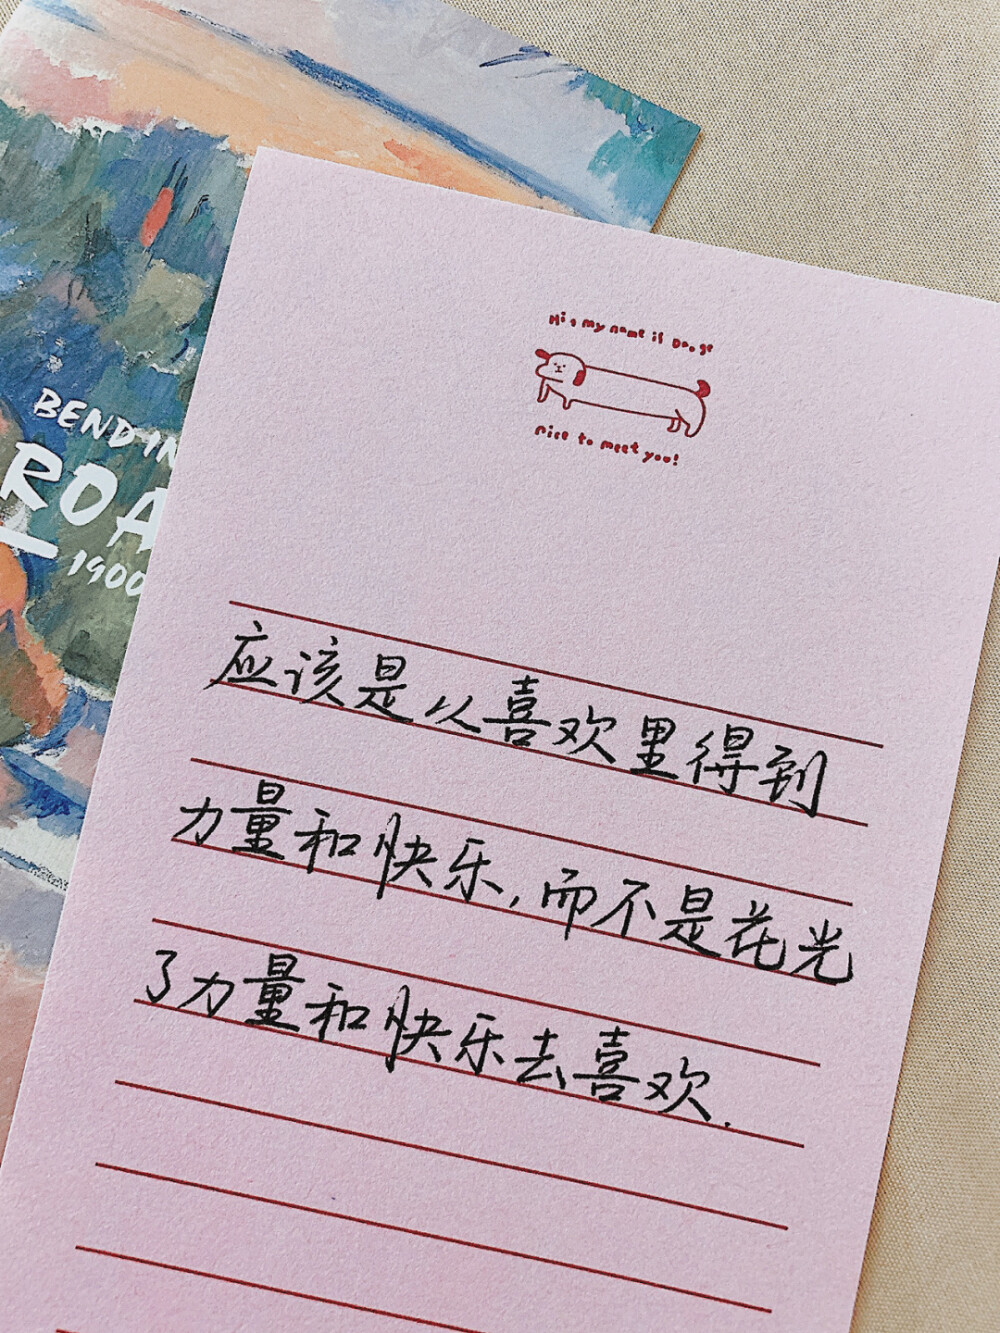 Hi, my name is Doge
nice to meet you!
BENDIN
ROA
1900
应该是从喜欢里得到
力量和快乐,而不是花光
了力量和快乐去喜欢.